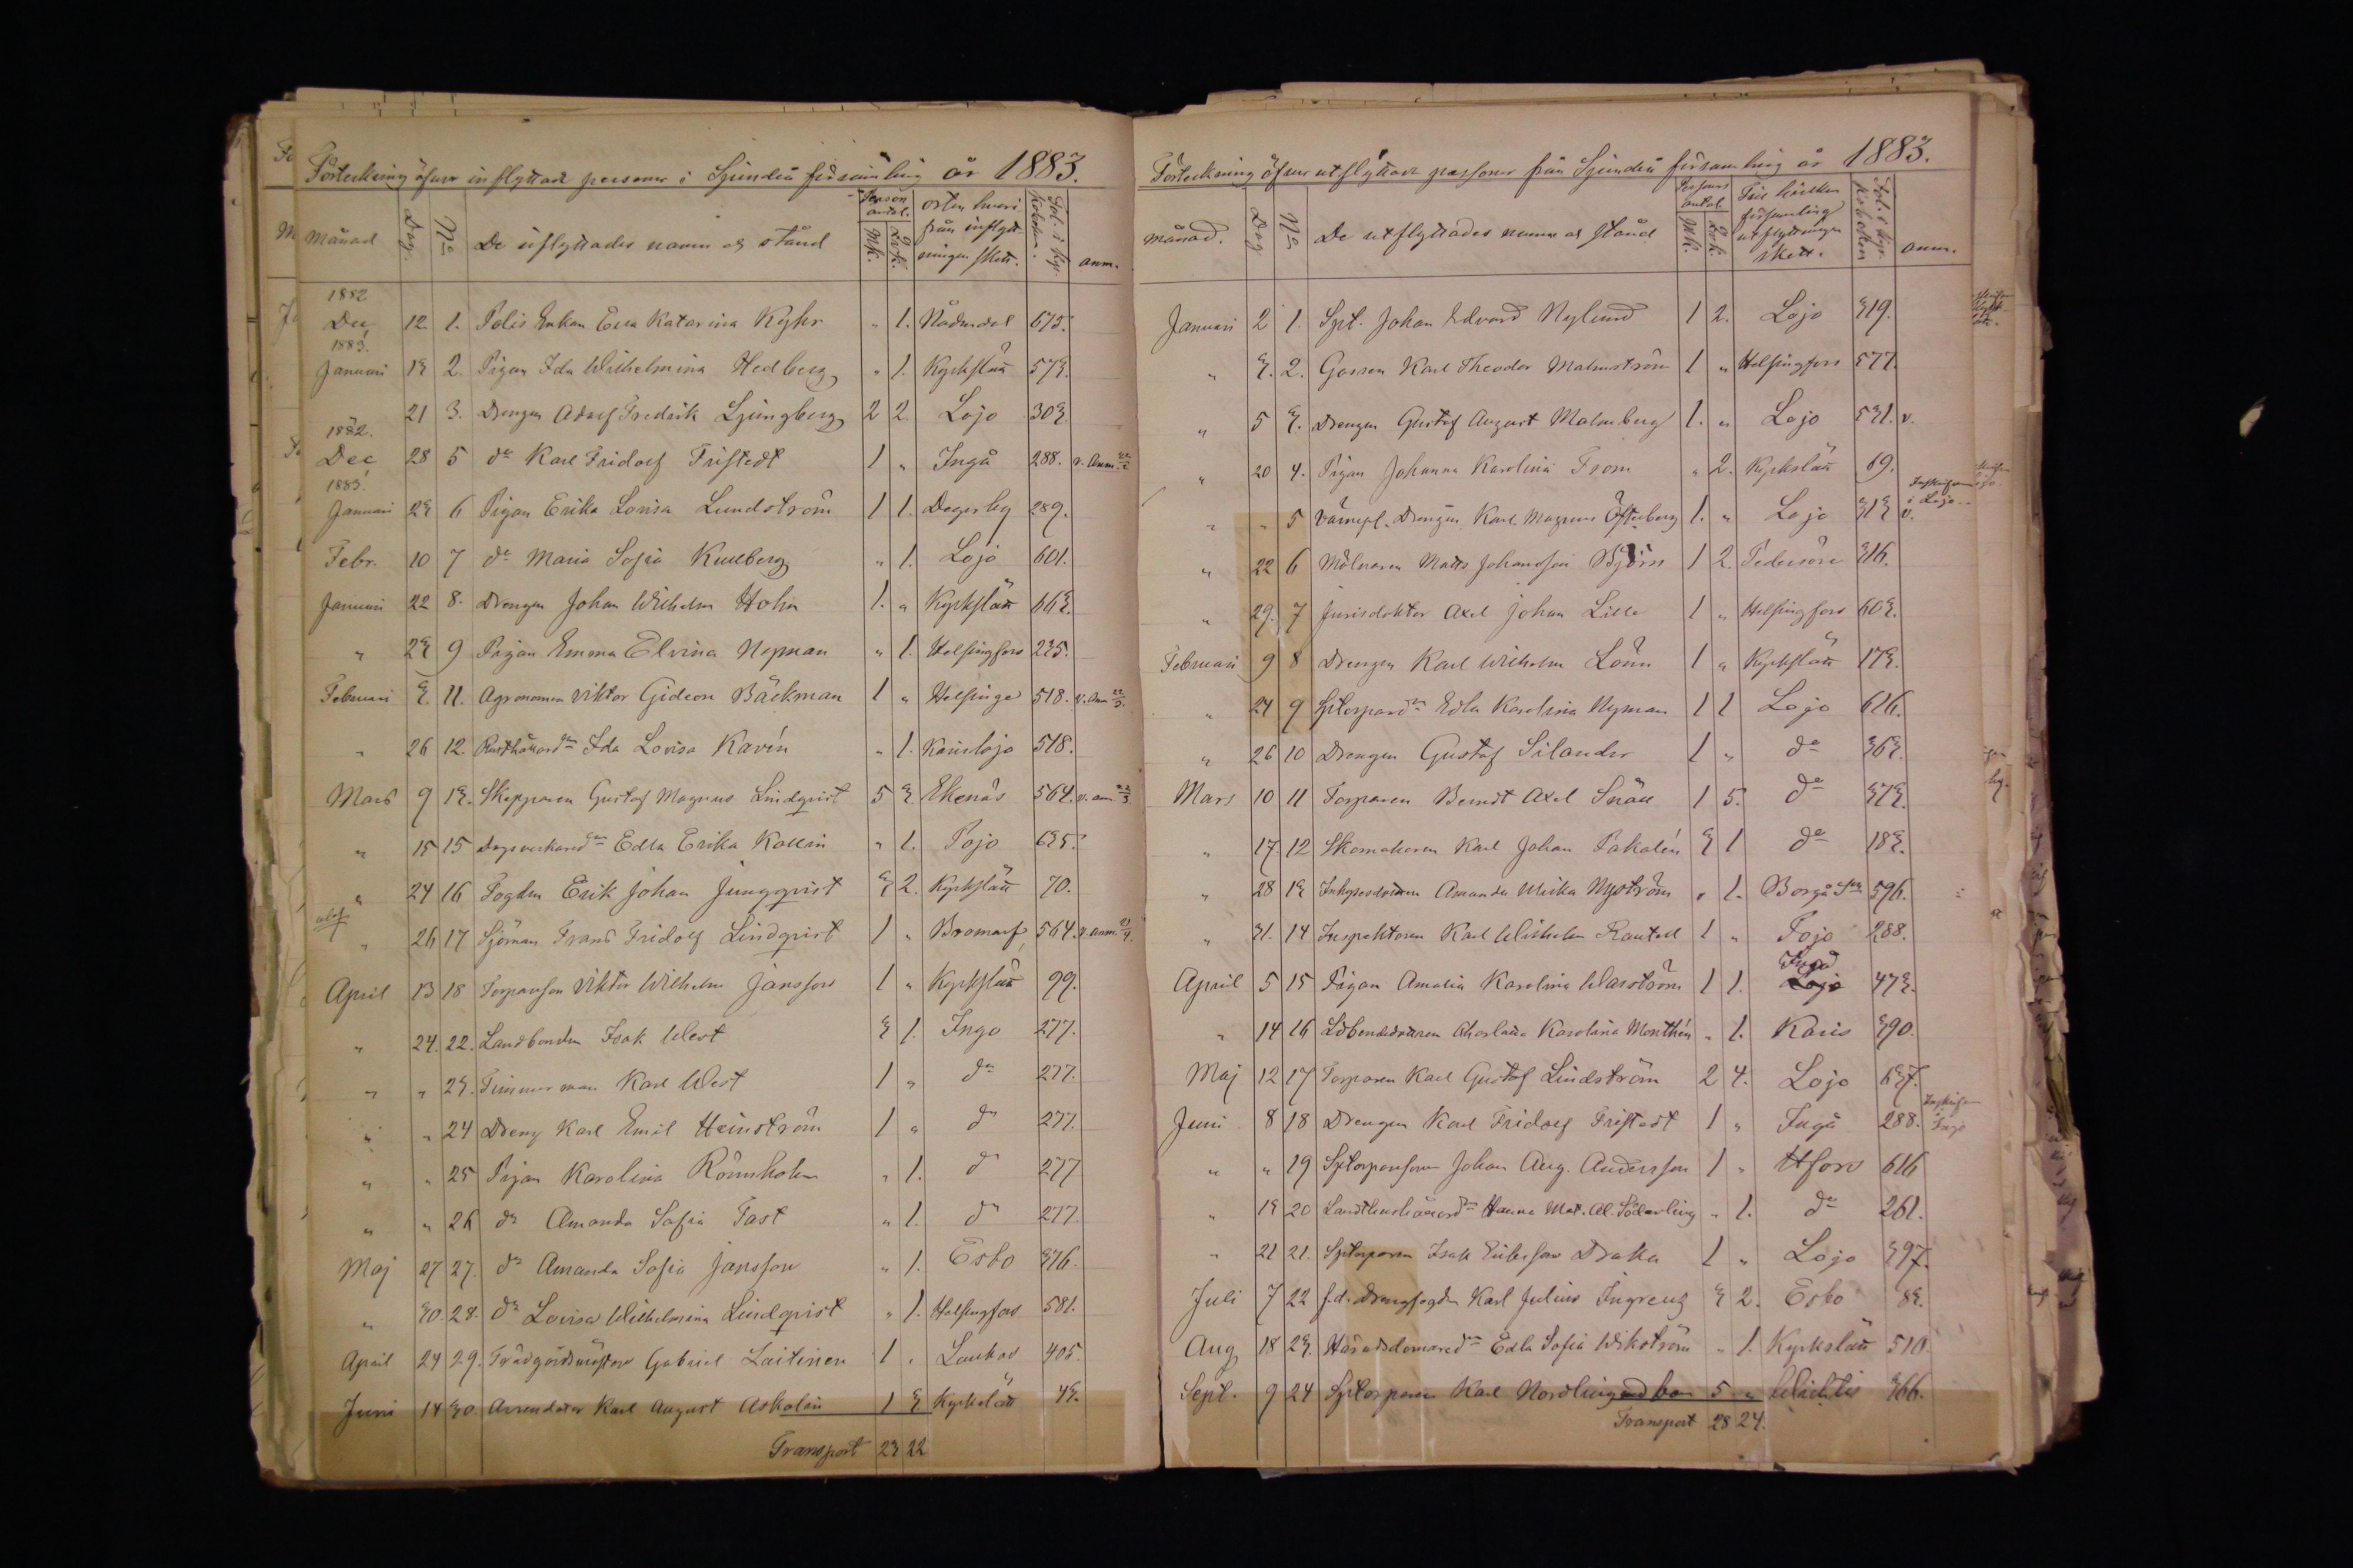 Förteckning öfver inflyttade personer i Sjundeå församling år 1883.
Månad Dag. No De inflyttades namn och stånd Person antal. Mk. Qvk. Orten hvari från inflyttningen skett. Fol. i Ky. Koboken. anm.
1882
Dec 12 1. Polis Enkan Eva Katarina Kyhr " 1. Nådendal 673.
1883.
Januari 13 2. Pigan Ida Wilhelmina Hedberg " 1. Kyrkslätt 573.
21 3. Drengen Adolf Fredrik Ljungberg 2 2. Lojo 303.
1882.
Dec 28 5 do Karl Fridolf Fristedt 1 " Ingå 288. v. Anm.
1883.
Januari 23 6 Pigan Erika Lovisa Lundström 1 1. Degerby 289.
Febr. 10 7 do Maria Sofia Kullberg " 1. Lojo 601.
Januari 22 8. Drengen Johan Wilhelm Holm 1. " Kyrkslätt 663.
" 23 9 Pigan Emma Elvina Nyman " 1. Helsingfors 235.
Februari 3. 11. Agronomen Viktor Gideon Bäckman 1 " Helsinge 518. v. Anm 22/3.
" 26 12. Rusthållared:n Ida Lovisa Kavén " 1. Karislojo 518.
Mars 9 13. Skepparen Gustaf Magnus Lindqvist 5 3. Ekenäs 564. v. anm 22/3
" 15 15 Dagsverkared:n Edla Erika Kollin " 1. Pojo 635.
" 24 16 Fogden Erik Johan Jungqvist 3 2. Kyrkslätt 70.
" 26 17 Sjöman Frans Fridolf Lindqvist 1 " Bromarf 564. v. anm.
April 13 18 Torparson Viktor Wilhelm Jansson 1 " Kyrkslätt 99.
" 24. 22. Landbonden Isak West 3 1. Ingo 277.
" " 23. Timmerman Karl West 1 " do 277.
" " 24 Dreng Karl Emil Heinström 1 " do 277.
" " 25 Pigan Karolina Rönnholm " 1. do 277
" " 26 do Amanda Sofia Fast " 1. do 277
Maj 27 27. do Amanda Sofia Jansson " 1. Esbo 376.
" 30. 28. do Lovisa Wilhelmina Lindqvist " 1. Helsingfors 581.
April 24 29. Trädgårdsmästare Gabriel Laitinen 1 " Laukas 405.
Juni 14 30 Arrendator Karl August Askolin 1 3 Kyrkslätt 43.
Transport 23 22
Förteckning öfver utflyttade personer från Sjundeå församling år 1883.
Månad. Dag No De utflyttades namn och stånd Persons antal Mk. Qvk. Till hvilken församling utflyttningen skett. Fol. i Kyr. Koboken anm.
Januari 2 1. Spt. Johan Edvard Nylund 1 2. Lojo 319.
" 3. 2. Gossen Karl Theodor Malmström 1 " Helsingfors 577.
" 5 3. Drengen Gustaf August Malmberg 1. " Lojo 531. v.
" 20 4. Pigan Johanna Karolina From " 2. Kyrkslätt 69.
" " 5 Värnepl. Drengen Karl Magnus Österberg 1. " Lojo 313 v. i Lojo.
" 22 6 Mölnaren Matts Johansson Björn 1 2. Pedersöre 316.
" 29. 7 Jurisdoktor Axel Johan Lille 1 " Helsingfors 603.
Februari 9 8 Drengen Karl Wilhelm Lönn 1 " Kyrkslätt 173.
" 24 9 Sptorpared:n Edla Karolina Nyman 1 1 Lojo 616.
" 26 10 Drengen Gustaf Silander 1 " do 363.
Mars 10 11 Torparen Berndt Axel Snäll 1 5. do 373.
" 17. 12 Skomakaren Karl Johan Pakalén 3 1 do 183.
" 28 13 Amanda Ulrika Nyström " 1. Borgå Stad 596.
" 31. 14 Inspektoren Karl Wilhelm Rautell 1 " Pojo 288.
Ingå
April 5 15 Pigan Amalia Karolina Wasström 1 1. Lojo 473.
" 14 16 Karolina Monthén " 1. Karis 390.
Maj 12 17 Torparen Karl Gustaf Lindström 2 4. Lojo 637.
Juni 8 18 Drengen Karl Fridolf Fristedt 1 " Ingå 288.
" " 19 Sptorparsonen Johan Aug. Andersson 1 " Hfors 616
" 13 20 Hanna Mat. Al. Söderling " 1. do 261.
" 21 21. Sptorparen Isak Eriksson Draka 1 " Lojo 397.
Juli 7 22 f.d. Drengfogden Karl Julius Ingrenz 3 2. Esbo 83.
Aug 18 23. Häradsdomared:n Edla Sofia Wikström " 1. Kyrkslätt 510.
Sept. 9 24 Sptorparen Karl Nordling med barn 5 " Wichtis 366.
Transport 28 24.